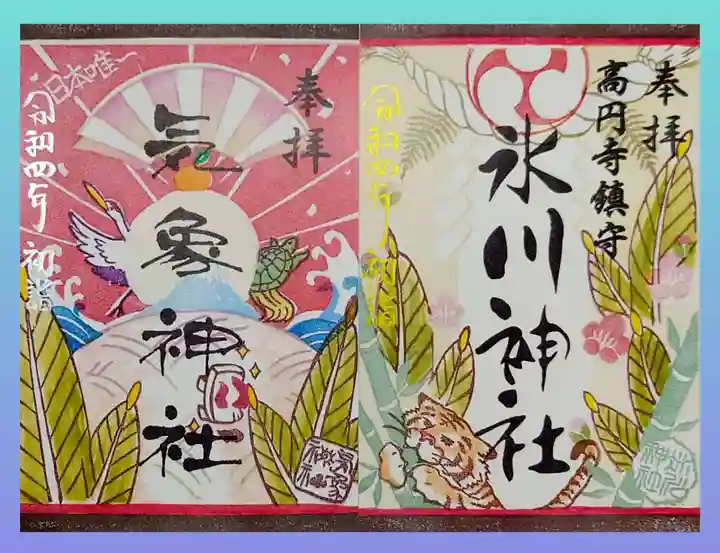 奉拝
気象神社
日本唯一
令和四年 初詣
気象神社
奉拝
高円寺鎮守
氷川神社
令和四年 初詣